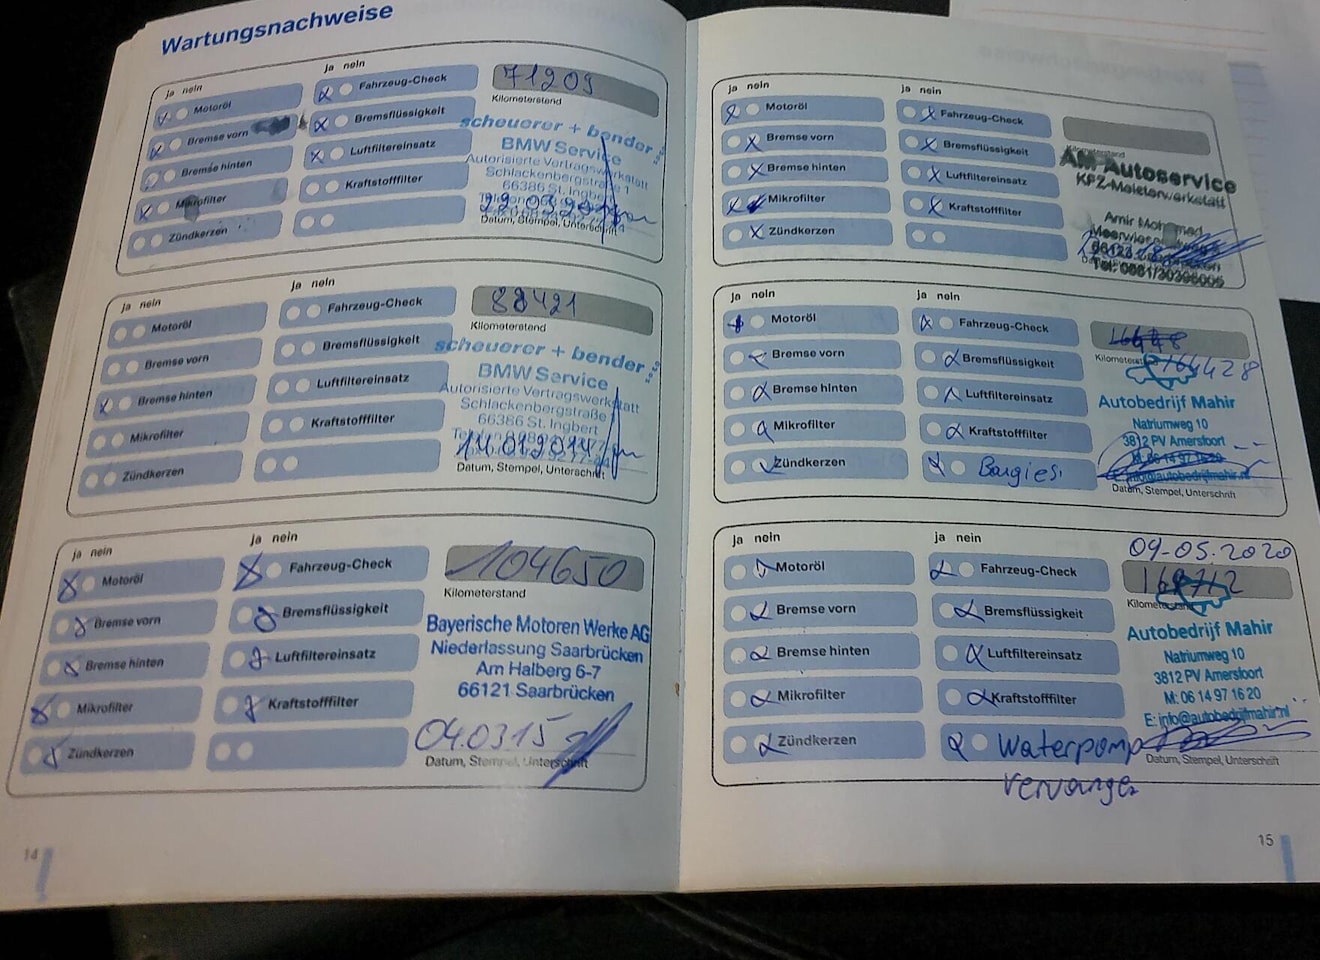 Wartungsnachweise
ja nein
Motoröl
Bremse vorn
Bremse hinten
Mikrofilter
Zündkerzen
ja nein
Fahrzeug-Check
Bremsflüssigkeit
Luftfiltereinsatz
Kraftstofffilter
71209
Kilometerstand
scheuerer + bender
BMW Service
Autorisierte Vertragswerkstatt
Schlackenbergstraße 1
66386 St. Ingbert
Datum, Stempel, Unterschrift
ja nein
Motoröl
Bremse vorn
Bremse hinten
Mikrofilter
Zündkerzen
ja nein
Fahrzeug-Check
Bremsflüssigkeit
Luftfiltereinsatz
Kraftstofffilter
88421
Kilometerstand
scheuerer + bender
BMW Service
Autorisierte Vertragswerkstatt
Schlackenbergstraße
66386 St. Ingbert
Datum, Stempel, Unterschrift
ja nein
Motoröl
Bremse vorn
Bremse hinten
Mikrofilter
Zündkerzen
ja nein
Fahrzeug-Check
Bremsflüssigkeit
Luftfiltereinsatz
Kraftstofffilter
104650
Kilometerstand
Bayerische Motoren Werke AG
Niederlassung Saarbrücken
Am Halberg 6-7
66121 Saarbrücken
04.03.15
Datum, Stempel, Unterschrift
14
ja nein
Motoröl
Bremse vorn
Bremse hinten
Mikrofilter
Zündkerzen
ja nein
Fahrzeug-Check
Bremsflüssigkeit
Luftfiltereinsatz
Kraftstofffilter
AM-Autoservice
KFZ-Meisterwerkstatt
Amir
ja nein
Motoröl
Bremse vorn
Bremse hinten
Mikrofilter
Zündkerzen
ja nein
Fahrzeug-Check
Bremsflüssigkeit
Luftfiltereinsatz
Kraftstofffilter
Bougies
164428
Autobedrijf Mahir
Natriumweg 10
3812 PV Amersfoort
M: 06 14 97 16 20
E: info@autobedrijfmahir.nl
Datum, Stempel, Unterschrift
ja nein
Motoröl
Bremse vorn
Bremse hinten
Mikrofilter
Zündkerzen
ja nein
Fahrzeug-Check
Bremsflüssigkeit
Luftfiltereinsatz
Kraftstofffilter
Waterpomp
vervangen
09-05-2020
Autobedrijf Mahir
Natriumweg 10
3812 PV Amersfoort
M: 06 14 97 16 20
E: info@autobedrijfmahir.nl
Datum, Stempel, Unterschrift
15